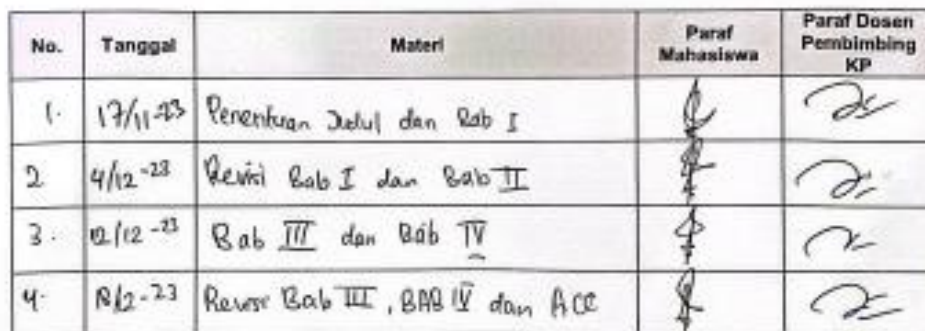 No. Tanggal Materi Paraf Mahasiswa Paraf Dosen Pembimbing KP
1. 17/11-23 Penentuan Judul dan Bab I
2 4/12-23 Revisi Bab I dan Bab II
3. 12/12-23 Bab III dan Bab IV
4. Revisi Bab III, BAB IV dan ACC